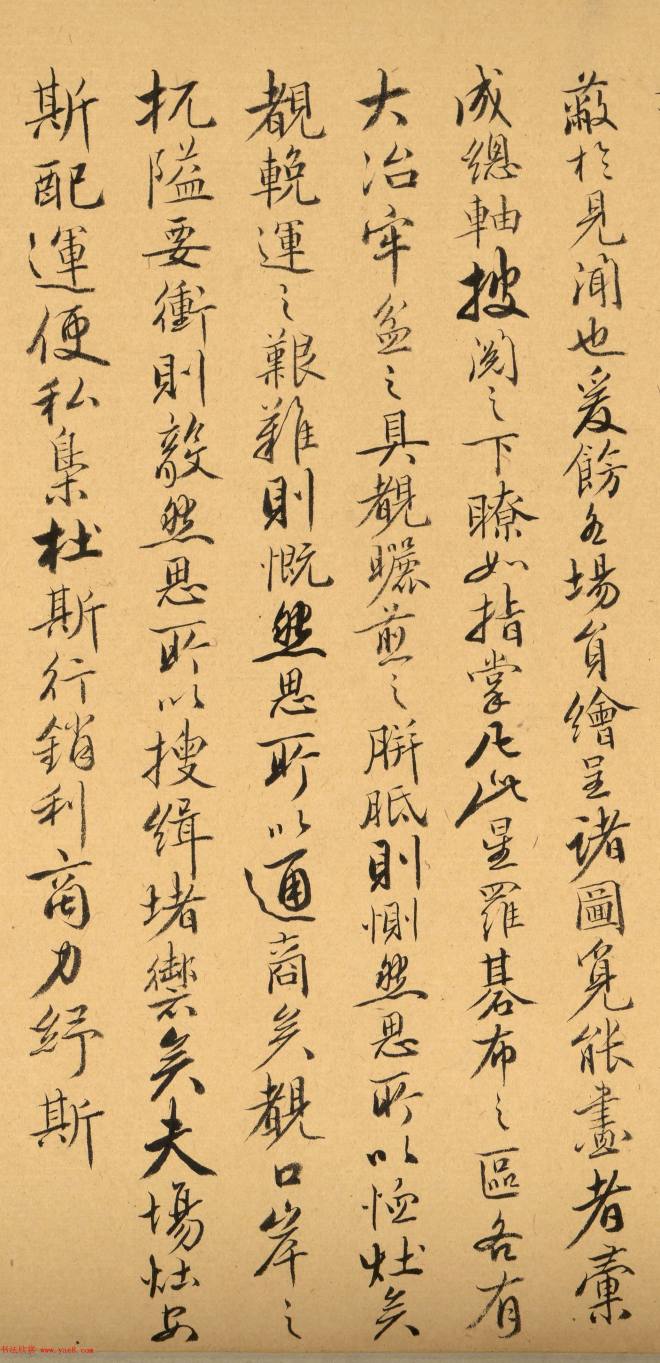 蔽於見聞也爰飭各場員繪呈諸圖覓能畫者彙
成總軸披閱之下瞭如指掌凡此星羅碁布之區各有
大冶牢盆之具覩曬煎之胼胝則惻然思所以恤灶矣
覩輓運之艱難則慨然思所以通商矣觀口岸之
扼隘要衝則毅然思所以搜緝堵禦矣夫場灶安
斯配運便私梟杜斯行銷利商力紓斯
书法欣赏 www.yac8.com